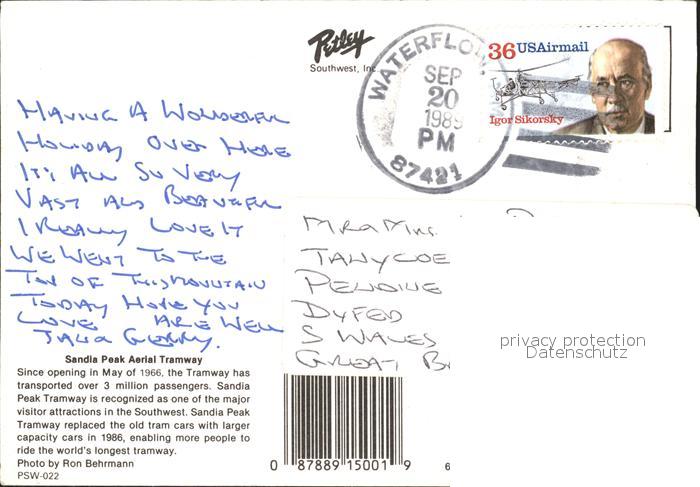 Petley
Southwest, Inc.
WATERFLOW,
SEP
20
1989
PM
87421
36 USAirmail
Igor Sikorsky
HAVING A WONDERFUL
HOLIDAY OVER HERE
IT'S ALL SO VERY
VAST AND BEAUTIFUL
I REALLY LOVE IT
WE WENT TO THE
TOP OF THIS MOUNTAIN
TODAY HOPE YOU
LOVE ARE WELL
GERRY.
MR & MRS.
TALYCOE
PENDINE
DYFED
S WALES
GREAT B
privacy protection
Datenschutz
Sandia Peak Aerial Tramway
Since opening in May of 1966, the Tramway has
transported over 3 million passengers. Sandia
Peak Tramway is recognized as one of the major
visitor attractions in the Southwest. Sandia Peak
Tramway replaced the old tram cars with larger
capacity cars in 1986, enabling more people to
ride the world's longest tramway.
Photo by Ron Behrmann
PSW-022
0 87889 15001 9 6